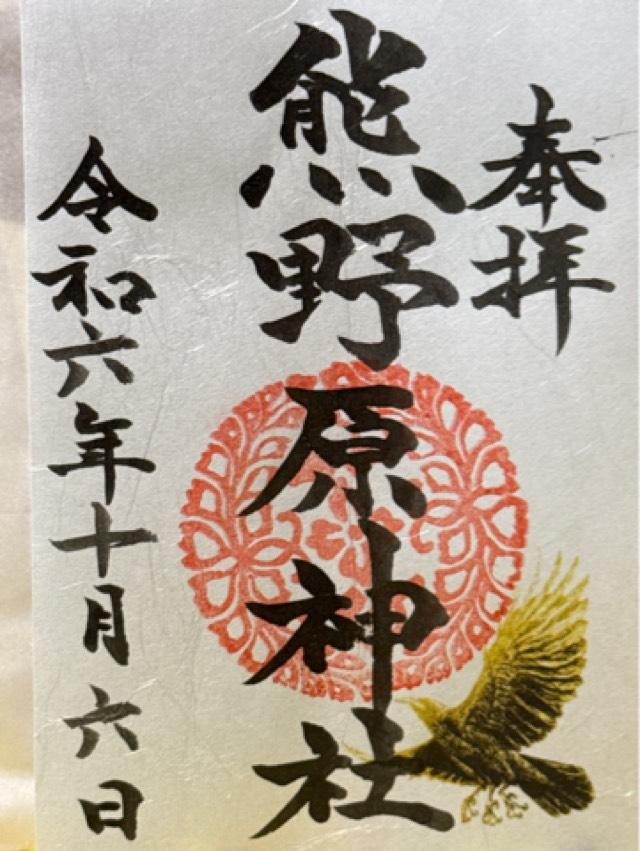 奉拝
熊野原神社
令和六年十月六日